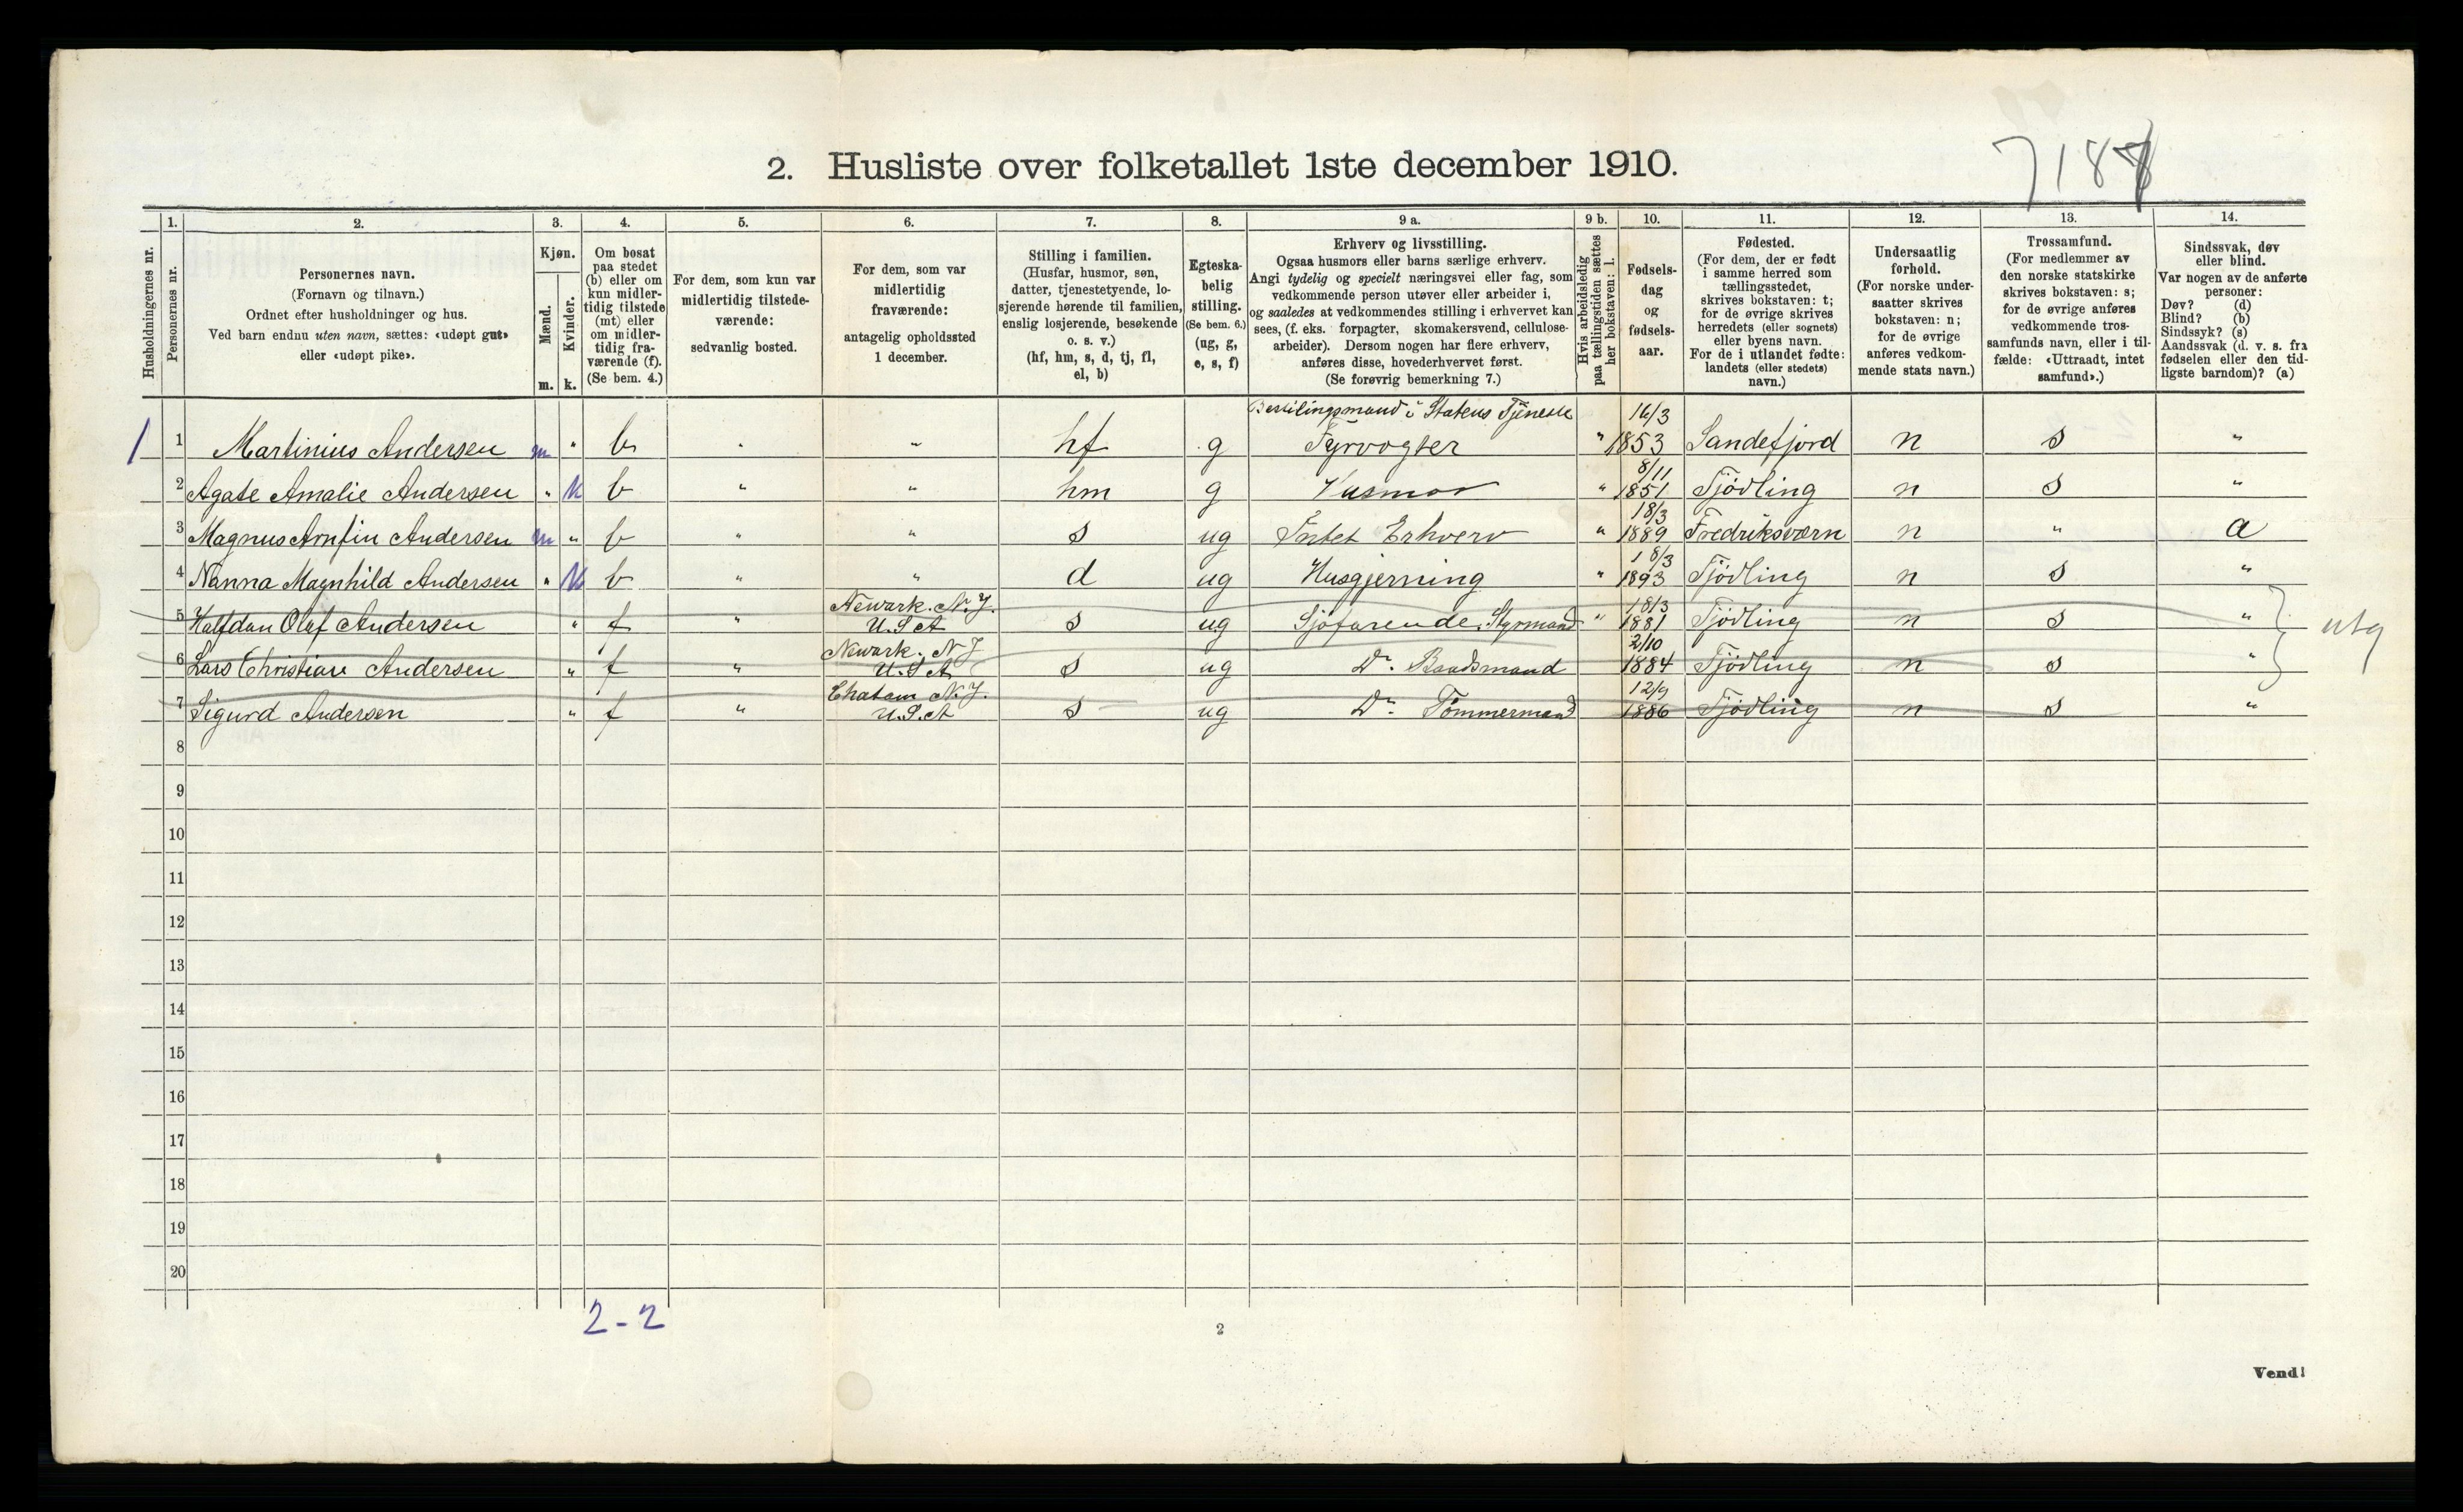 2. Husliste over folketallet 1ste december 1910.
1. 2. 3. 4. 5. 6. 7. 8. 9 a. 9 b. 10. 11. 12. 13. 14.
Husholdningernes nr.
Personernes nr.
Personernes navn.
(Fornavn og tilnavn.)
Ordnet efter husholdninger og hus.
Ved barn endnu uten navn, sættes: «udøpt gut»
eller «udøpt pike».
Kjøn.
Mænd.
m.
Kvinder.
k.
Om bosat
paa stedet
(b) eller om
kun midler-
tidig tilstede
(mt) eller
om midler-
tidig fra-
værende (f).
(Se bem. 4.)
For dem, som kun var
midlertidig tilstede-
værende:
sedvanlig bosted.
For dem, som var
midlertidig
fraværende:
antagelig opholdssted
1 december.
Stilling i familien.
(Husfar, husmor, søn,
datter, tjenestetyende, lo-
sjerende hørende til familien,
enslig losjerende, besøkende
o. s. v.)
(hf, hm, s, d, tj, fl,
el, b)
Egteska-
belig
stilling.
(Se bem. 6.)
(ug, g,
e, s, f)
Erhverv og livsstilling.
Ogsaa husmors eller barns særlige erhverv.
Angi tydelig og specielt næringsvei eller fag, som
vedkommende person utøver eller arbeider i,
og saaledes at vedkommendes stilling i erhvervet kan
sees, (f. eks. forpagter, skomakersvend, cellulose-
arbeider). Dersom nogen har flere erhverv,
anføres disse, hovederhvervet først.
(Se forøvrig bemerkning 7.)
Hvis arbeidsledig
paa tællingstiden sættes
her bokstaven: l.
Fødsels-
dag
og
fødsels-
aar.
Fødested.
(For dem, der er født
i samme herred som
tællingsstedet,
skrives bokstaven: t;
for de øvrige skrives
herredets (eller sognets)
eller byens navn.
For de i utlandet fødte:
landets (eller stedets)
navn.)
Undersaatlig
forhold.
(For norske under-
saatter skrives
bokstaven: n;
for de øvrige
anføres vedkom-
mende stats navn.)
Trossamfund.
(For medlemmer av
den norske statskirke
skrives bokstaven: s;
for de øvrige anføres
vedkommende tros-
samfunds navn, eller i til-
fælde: «Uttraadt, intet
samfund».)
Sindssvak, døv
eller blind.
Var nogen av de anførte
personer:
Døv? (d)
Blind? (b)
Sindssyk? (s)
Aandssvak (d. v. s. fra
fødselen eller den tid-
ligste barndom)? (a)
Bestilingsmand i Statens Tjeneste 16/3
1 1 Martinius Andersen m " b " " hf g Fyrvogter " 1853 Sandefjord n s "
8/11
2 Agate Amalie Andersen " k b " " hm g Husmor " 1851 Tjödling n s "
18/3
3 Magnus Arnfin Andersen m " b " " s ug Intet Erhverv " 1889 Fredriksværn n " a
18/3
4 Nanna Magnhild Andersen " k b " " d ug Husgjerning " 1893 Tjödling n s "
Newark. N.J. 18/3
5 Halfdan Olaf Andersen " f " U.S.A s ug Sjöfarende. Styrmand " 1881 Tjödling n s "
utg
Newark. N.J 2/10
6 Lars Christian Andersen " f " U.S.A s ug Do. Baadsmand 1884 Tjödling n s "
Chatam N.J. 12/9
7 Sigurd Andersen " f " U.S.A s ug Do. Tömmermand 1886 Tjödling n s "
8
9
10
11
12
13
14
15
16
17
18
19
20
2 - 2
2
Vend!